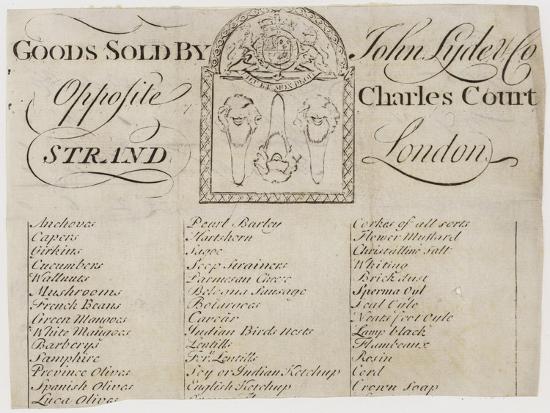 GOODS SOLD BY John Lyde & Co
Opposite Charles Court
STRAND London
Anchoves
Capers
Girkins
Cucumbers
Wallnuts
Mushrooms
French Beans
Green Mangoes
White Mangoes
Barberys
Samphire
Province Olives
Spanish Olives
Luca Olives
Pearl Barley
Hartshorn
Sagoe
Soop Strainers
Parmesan Cheese
Bolona Sausage
Botargoes
Cavear
Indian Birds nests
Lentills
Fr. Lentills
Soy or Indian Ketchup
English Ketchup
Corkes of all sorts
Flower Mustard
Christalline Salt
Whiting
Brick dust
Sperma Oyl
Seal Oyle
Neats foot Oyle
Lamp black
Flambeaux
Rosin
Cord
Crown Soap